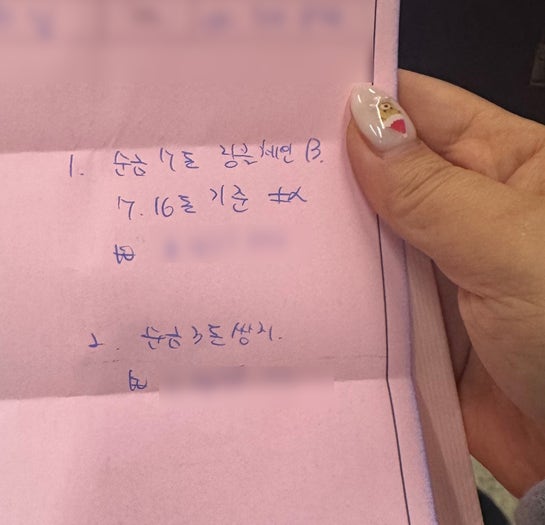 1. 순금 17돈 링블체인 B.
17.16돈 기준 +α
₩
2. 순금 3돈 쌍지.
₩